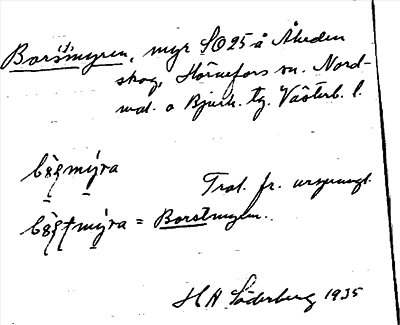 Bors(t)myren, myr SO 25 å Åheden
skog, Hörnefors sn. Nord-
mal. o Bjurh. tg. Västerb. l.
myra
Trol. fr. ursprungl.
myra = Borstmyren.
H A Söderberg 1935